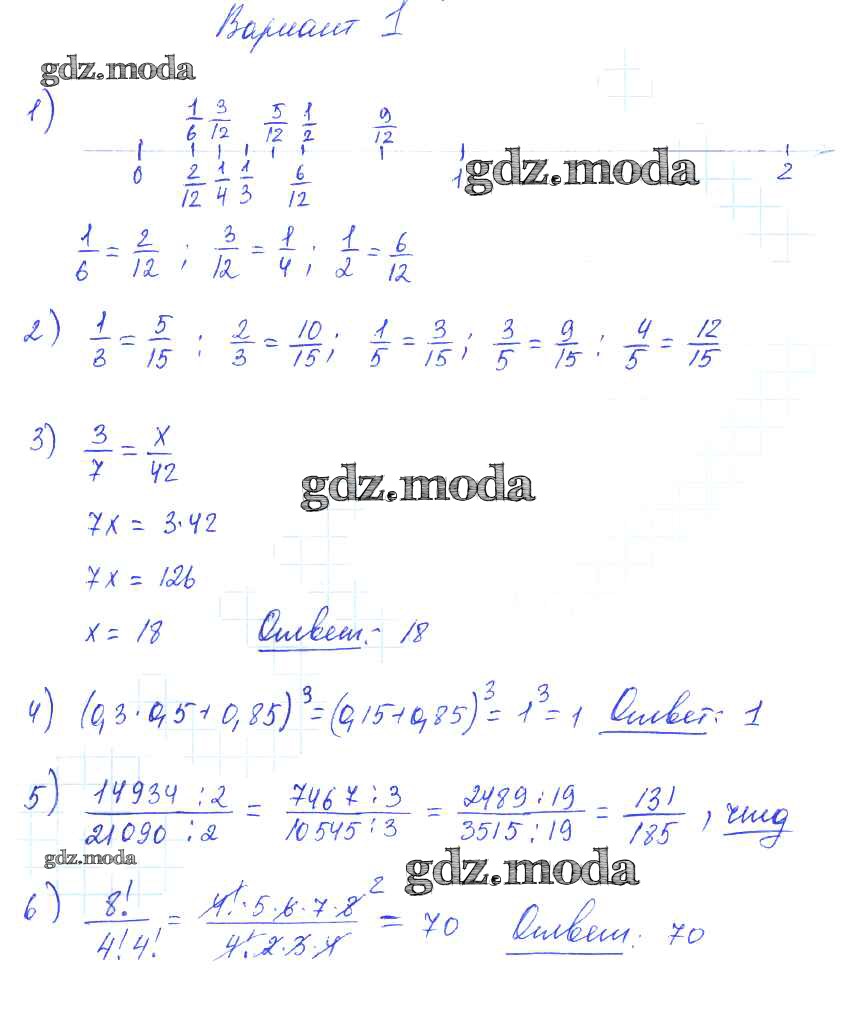 Вариант 1
gdz.moda
1) 1/6 3/12 5/12 1/2 9/12
0 2/12 1/4 1/3 6/12 1 gdz.moda 2
1/6 = 2/12 ; 3/12 = 1/4 ; 1/2 = 6/12
2) 1/3 = 5/15 ; 2/3 = 10/15 ; 1/5 = 3/15 ; 3/5 = 9/15 ; 4/5 = 12/15
3) 3/7 = x/42
gdz.moda
7x = 3·42
7x = 126
x = 18 Ответ: 18
4) (0,3·0,5+0,85)³=(0,15+0,85)³=1³=1 Ответ: 1
5) 14934:2/21090:2 = 7467:3/10545:3 = 2489:19/3515:19 = 131/185 , чтд
gdz.moda gdz.moda
6) 8!/4!4! = 4!·5·6·7·8 2/4!·2·3·4 = 70 Ответ: 70